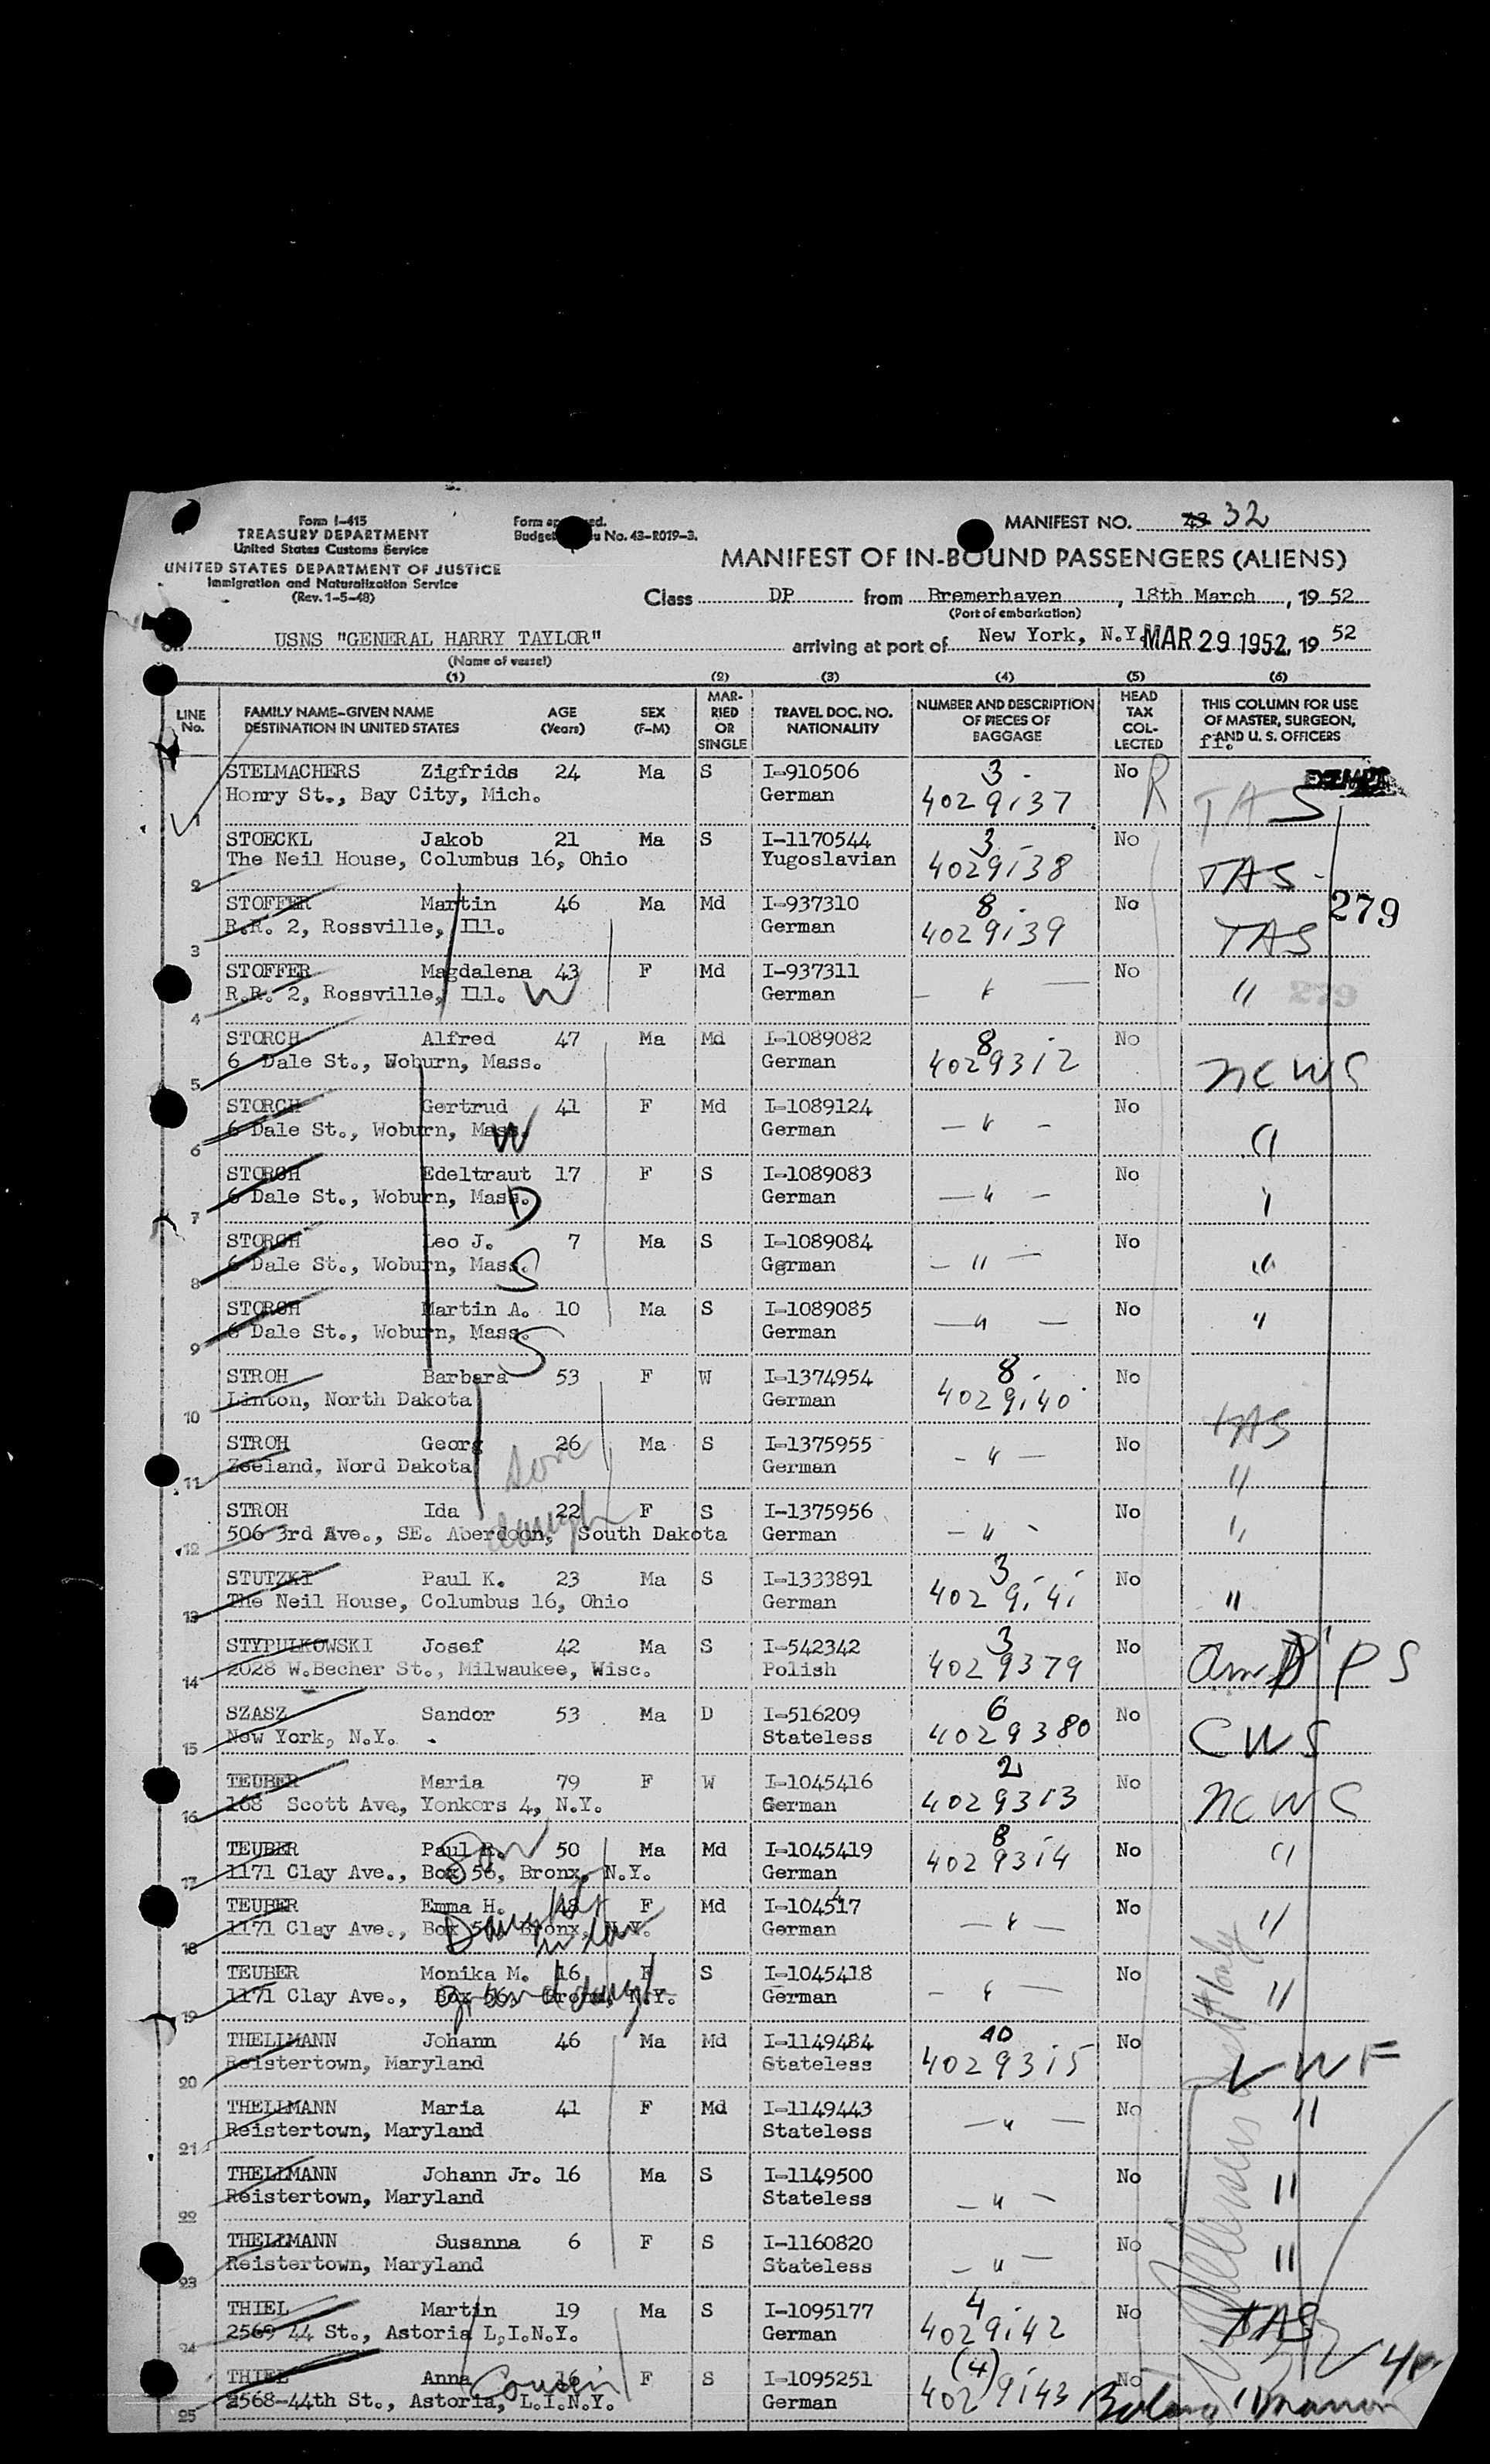 Form I-415
TREASURY DEPARTMENT
United States Customs Service
UNITED STATES DEPARTMENT OF JUSTICE
Immigration and Naturalization Service
(Rev. 1-5-48)
Form
Budget No. 43-R019-3.
MANIFEST NO. 32
MANIFEST OF IN-BOUND PASSENGERS (ALIENS)
Class DP from Bremerhaven, 18th March, 19 52
(Port of embarkation)
USNS "GENERAL HARRY TAYLOR" arriving at port of New York, N.Y. MAR 29 1952, 19 52
(Name of vessel)
(1) (2) (3) (4) (5) (6)
LINE No.
FAMILY NAME—GIVEN NAME DESTINATION IN UNITED STATES
AGE (Years)
SEX (F-M)
MARRIED OR SINGLE
TRAVEL DOC. NO. NATIONALITY
NUMBER AND DESCRIPTION OF PIECES OF BAGGAGE
HEAD TAX COLLECTED
THIS COLUMN FOR USE OF MASTER, SURGEON, AND U. S. OFFICERS
STELMACHERS Zigfrids 24 Ma S I-910506 3 No R EXEMPT
1 Honry St., Bay City, Mich. German 4029137 TAS
STOECKL Jakob 21 Ma S I-1170544 3 No
2 The Neil House, Columbus 16, Ohio Yugoslavian 4029138 TAS
279
STOFFER Martin 46 Ma Md I-937310 8 No
3 R.R. 2, Rossville, Ill. German 4029139 TAS
STOFFER Magdalena 43 F Md I-937311 No
4 R.R. 2, Rossville, Ill. W German — " — " 279
STORCH Alfred 47 Ma Md I-1089082 8 No
5 6 Dale St., Woburn, Mass. German 4029312 NCWS
STORCH Gertrud 41 F Md I-1089124 No
6 6 Dale St., Woburn, Mass. W German — " — "
STORCH Edeltraut 17 F S I-1089083 No
7 6 Dale St., Woburn, Mass. D German — " — "
STORCH Leo J. 7 Ma S I-1089084 No
8 6 Dale St., Woburn, Mass. S German — " — "
STORCH Martin A. 10 Ma S I-1089085 No
9 6 Dale St., Woburn, Mass. S German — " — "
STROH Barbara 53 F W I-1374954 8 No
10 Linton, North Dakota German 4029140 TAS
STROH Georg 26 Ma S I-1375955 No
11 Zeeland, Nord Dakota son German — " — "
STROH Ida 22 F S I-1375956 No
12 506 3rd Ave., SE. Aberdoon, South Dakota daugh German — " — "
STUTZKI Paul K. 23 Ma S I-1333891 3 No
13 The Neil House, Columbus 16, Ohio German 4029141 "
STYPULKOWSKI Josef 42 Ma S I-542342 3 No
14 2028 W.Becher St., Milwaukee, Wisc. Polish 4029379
SZASZ Sandor 53 Ma D I-516209 6 No
15 New York, N.Y. Stateless 4029380 CWS
TEUBER Maria 79 F W I-1045416 2 No
16 168 Scott Ave, Yonkors 4, N.Y. German 4029313 NCWS
TEUBER Paul R. 50 Ma Md I-1045419 8 No
17 1171 Clay Ave., Box 56, Bronx, N.Y. Son German 4029314 "
TEUBER Emma H. 48 F Md I-104517 4 No
18 1171 Clay Ave., Box 56, Bronx, N.Y. Daughter in law German — " — "
TEUBER Monika M. 16 F S I-1045418 No
19 1171 Clay Ave., Box 56, Bronx, N.Y. Grand daugh German — " — "
THELLMANN Johann 46 Ma Md I-1149484 10 No
20 Reistertown, Maryland Stateless 4029315 LWF
THELLMANN Maria 41 F Md I-1149443 No
21 Reistertown, Maryland Stateless — " — "
THELLMANN Johann Jr. 16 Ma S I-1149500 No
22 Reistertown, Maryland Stateless — " — "
THELLMANN Susanna 6 F S I-1160820 No
23 Reistertown, Maryland Stateless — " — "
THIEL Martin 19 Ma S I-1095177 4 No
24 2569 44 St., Astoria L.I.N.Y. German 4029142 TAS
THIEL Anna 16 F S I-1095251 (4) No
25 2568-44th St., Astoria, L.I.N.Y. Cousin German 4029143 "